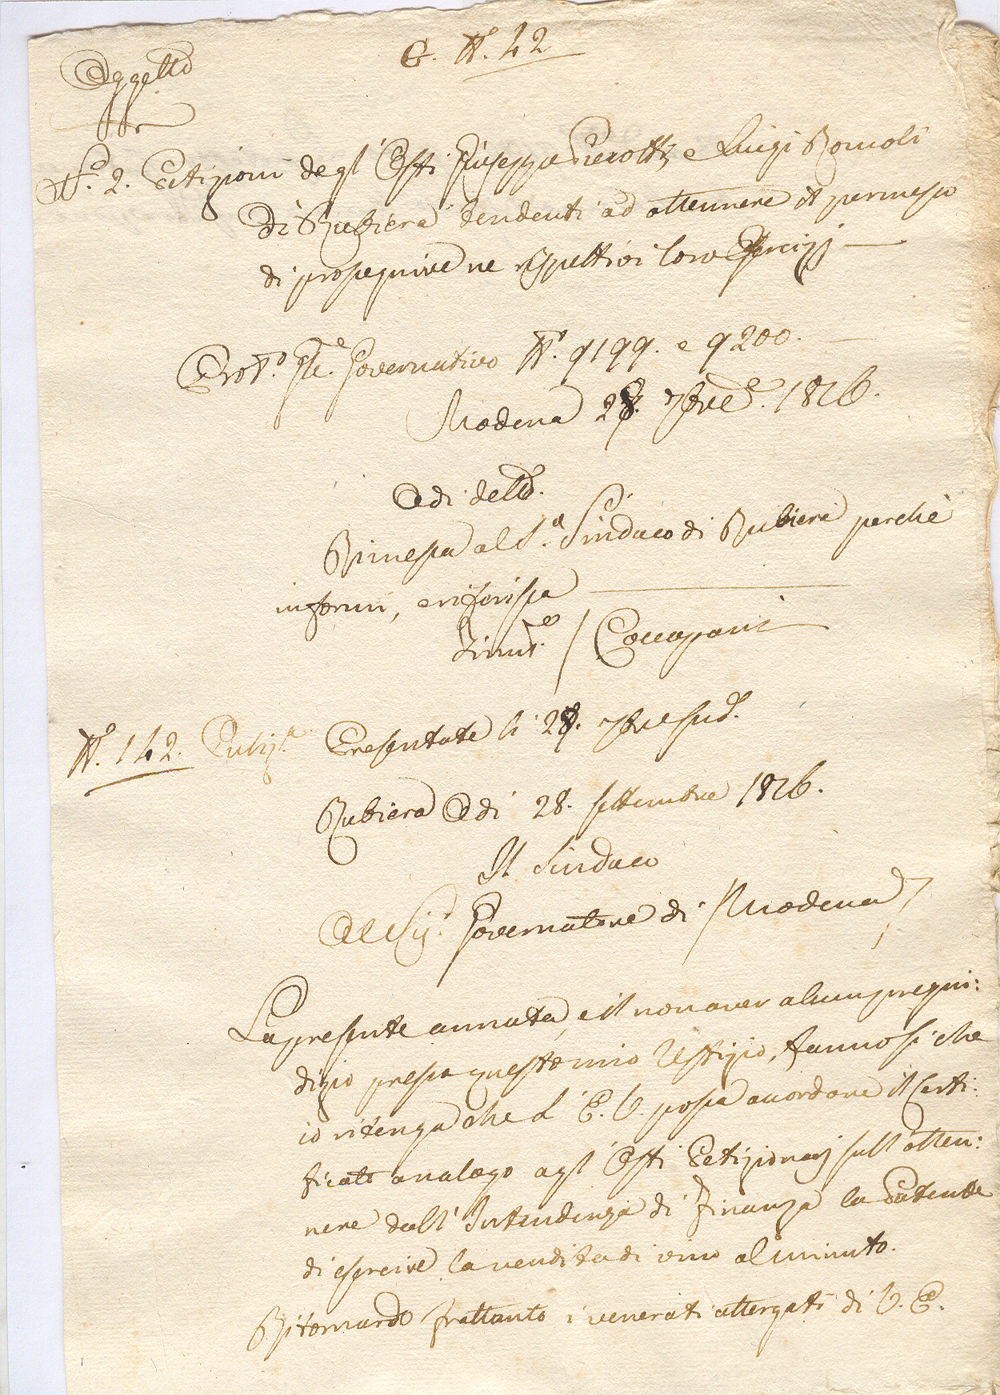 G. N.° 42
Oggetto
N.° 2. Petizioni degl' Osti Giuseppe Pierotti, e Luigi Romoli
di Rubiera tendenti ad ottennere il permesso
di proseguire ne rispettivi loro Esercizj
Prot.° Gle. Governativo N.° 9199. e 9200.
Modena 28. 7bre. 1826.
Adi detto.
Rimessa al S.r Sindaco di Rubiera perchè
informi, e riferisca
Firmt.o / Coccapani
N.° 142. Pulizia Presentate li 28. 7bre sud.°
Rubiera Adi 28. settembre 1826.
Il Sindaco
Al Sig.r Governatore di Modena
La presente annata, e il non aver alcun pregiu:
dizio presso questo mio Uffizio, fanno sì che
io ritenga che L' E. V. possa accordare il Certi:
ficato analogo agl' Osti Petizionarj sull' otten:
nere dall' Intendenza di Finanza la Patente
di esercire la vendita di vino al minuto.
Ritornando frattanto i venerati attergati di V. E.